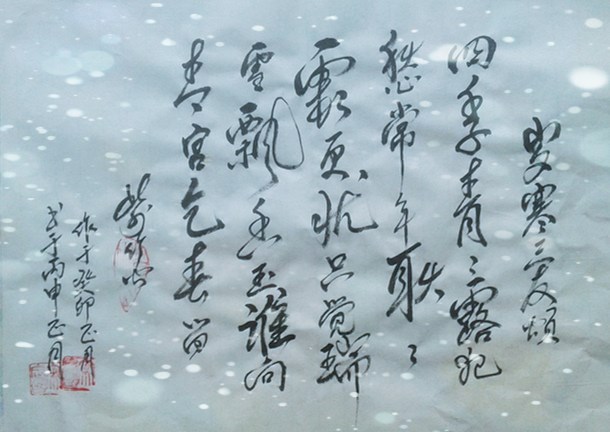 岁寒三友颂
四季青々露犯
愁常年耿々
霜更忧只觉瑞
雪飘香至谁向
青宫乞春留
作于癸卯正月
书于丙申正月